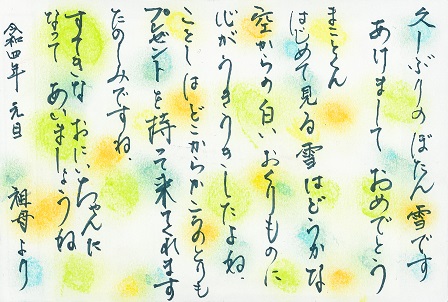 久しぶりのぼたん雪です
あけまして おめでとう
まことくん
はじめて見る雪はどうかな
空からの白いおくりものに
心がうきうきしたよね。
ことしはどこからかこうのとりも
プレゼントを持って来てくれます
たのしみですね。
すてきな おにいちゃんに
なって あいましょうね
令和四年 元旦
祖母より